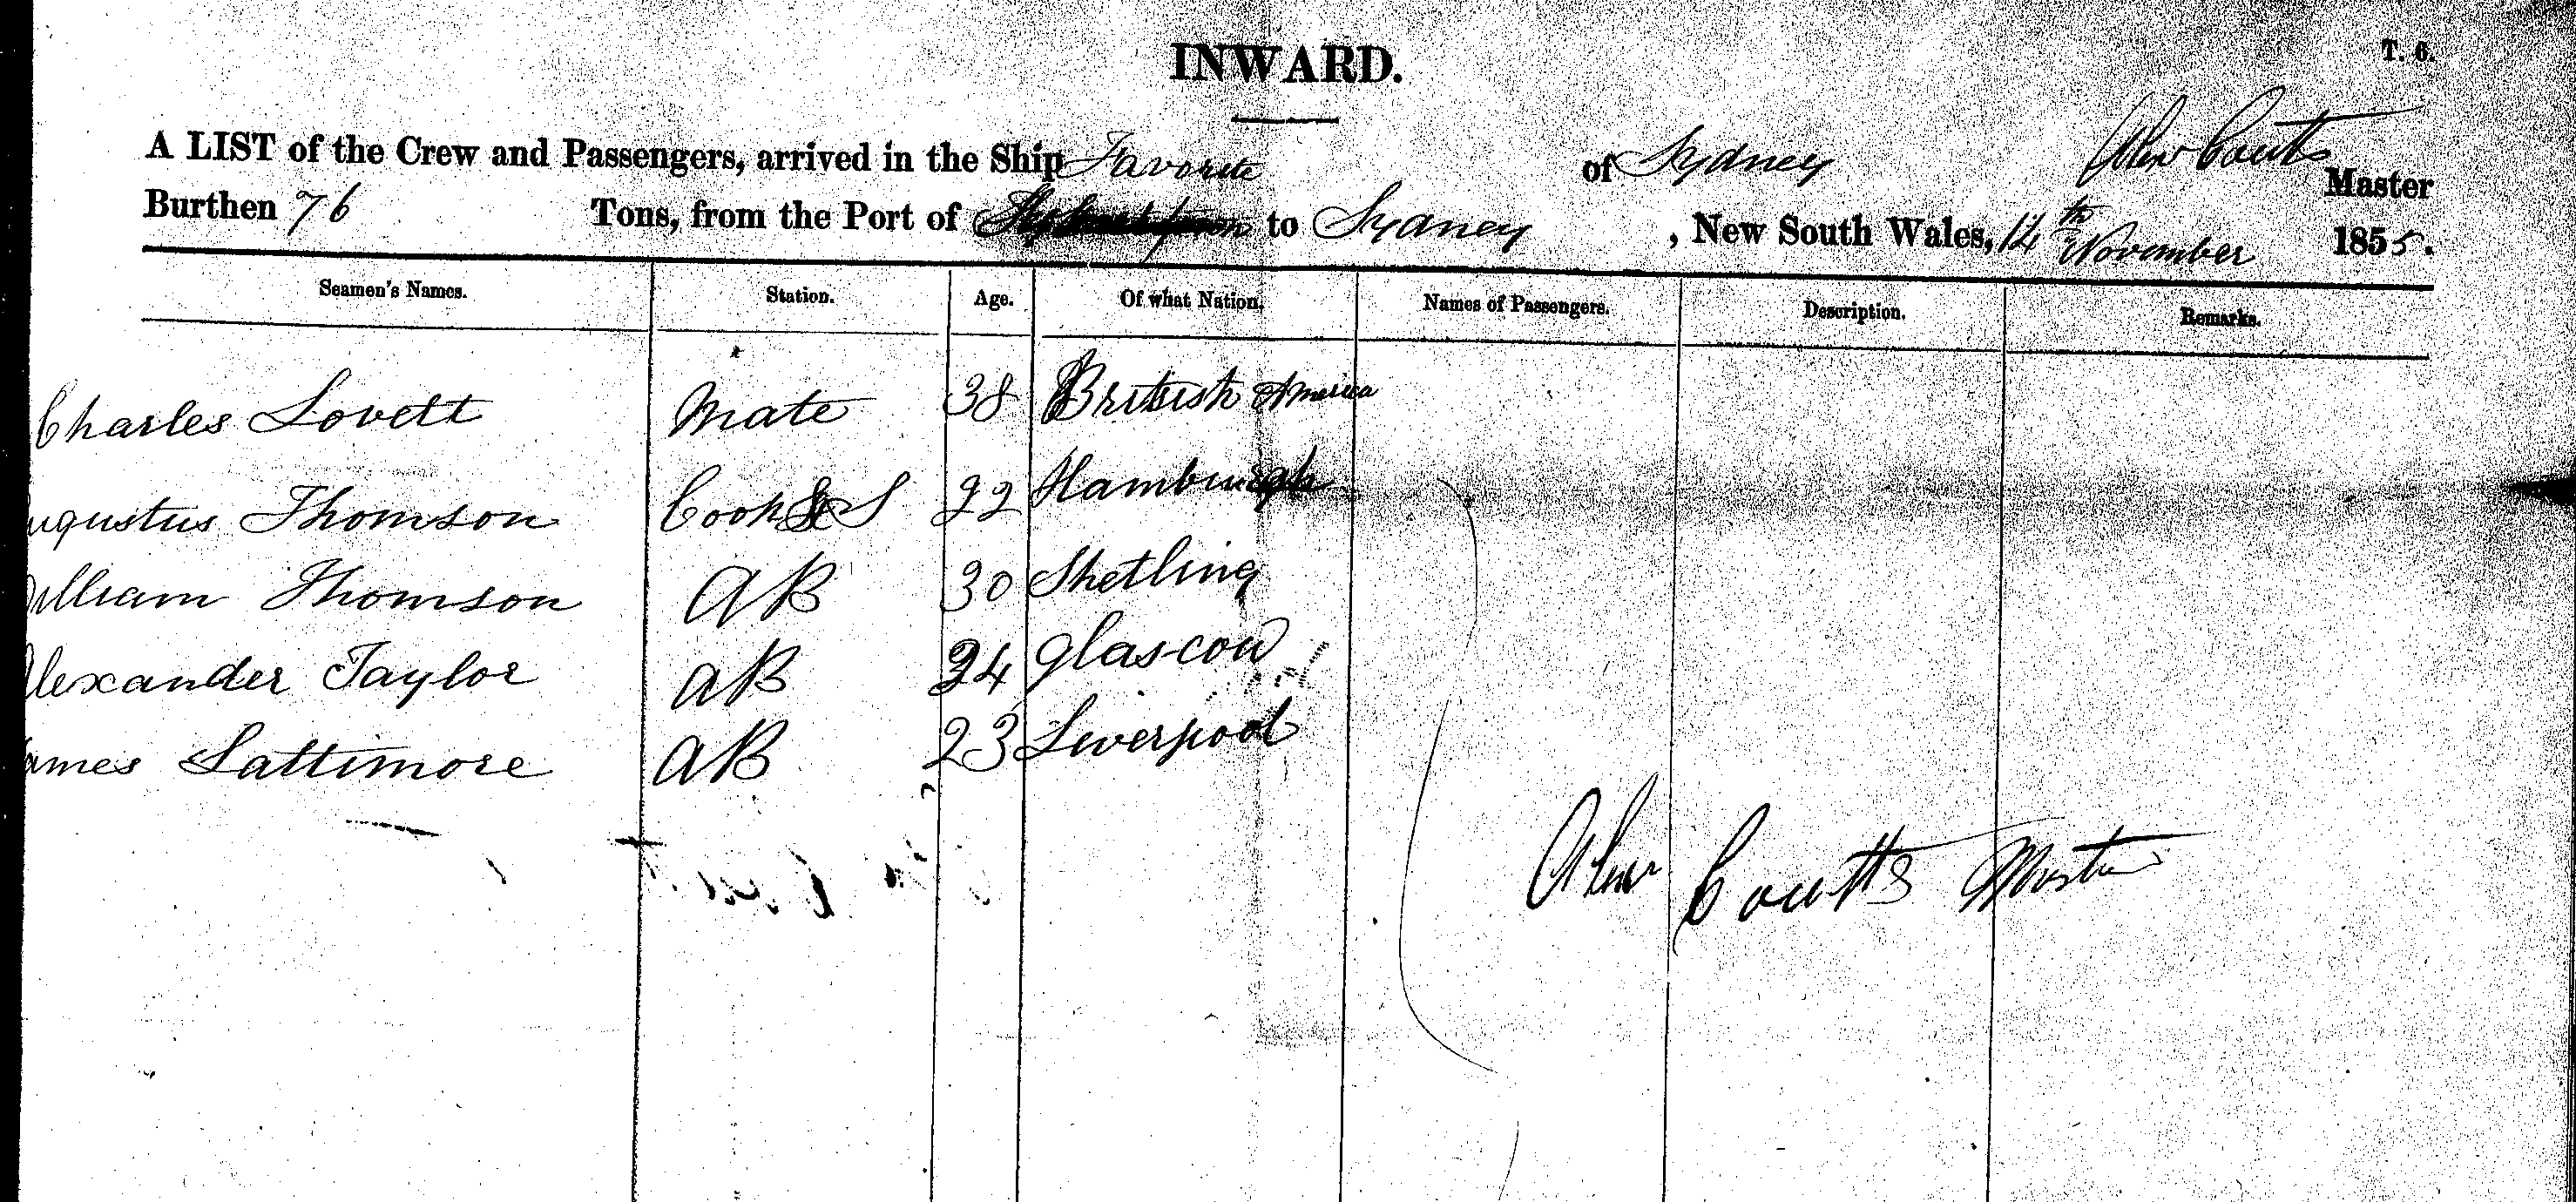 INWARD.
T. 6.
A LIST of the Crew and Passengers, arrived in the Ship Favorite of Sydney Alexr Coutts Master
Burthen 76 Tons, from the Port of to Sydney, New South Wales, 14th November 1855.
Seamen's Names. Station. Age. Of what Nation. Names of Passengers. Description. Remarks.
Charles Lovett Mate 38 British America
ugustus Thomson Cook & S 22 Hamburgh
William Thomson AB 30 Shetling
Alexander Taylor AB 24 Glascow
ames Lattimore AB 23 Liverpool
Alexr Coutts Master